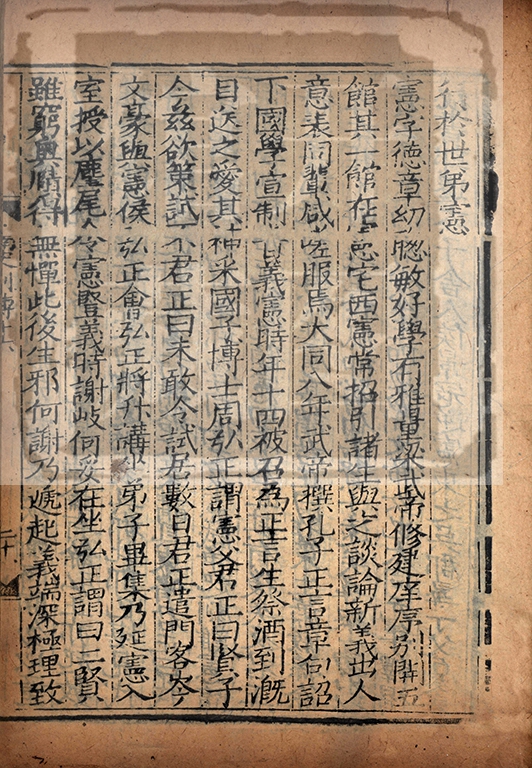 行於世弟憲
憲字德章幼聦敏好學有雅量梁武帝修建庠序別開五
館其一館在憲宅西憲常招引諸生與之談論新義出人
意表同輩咸嗟服焉大同八年武帝撰孔子正言章句詔
下國學宣制旨義憲時年十四被召爲正言生祭酒到漑
目送之愛其神采國子博士周弘正謂憲父君正曰賢子
今兹欲策試不君正曰未敢令試居數日君正遣門客岑
文豪與憲候弘正會弘正將升講坐弟子畢集乃延憲入
室授以麈尾令憲竪義時謝岐何妥在坐弘正謂曰二賢
雖窮奧賾得無憚此後生邪何謝乃遞起義端深極理致
二十